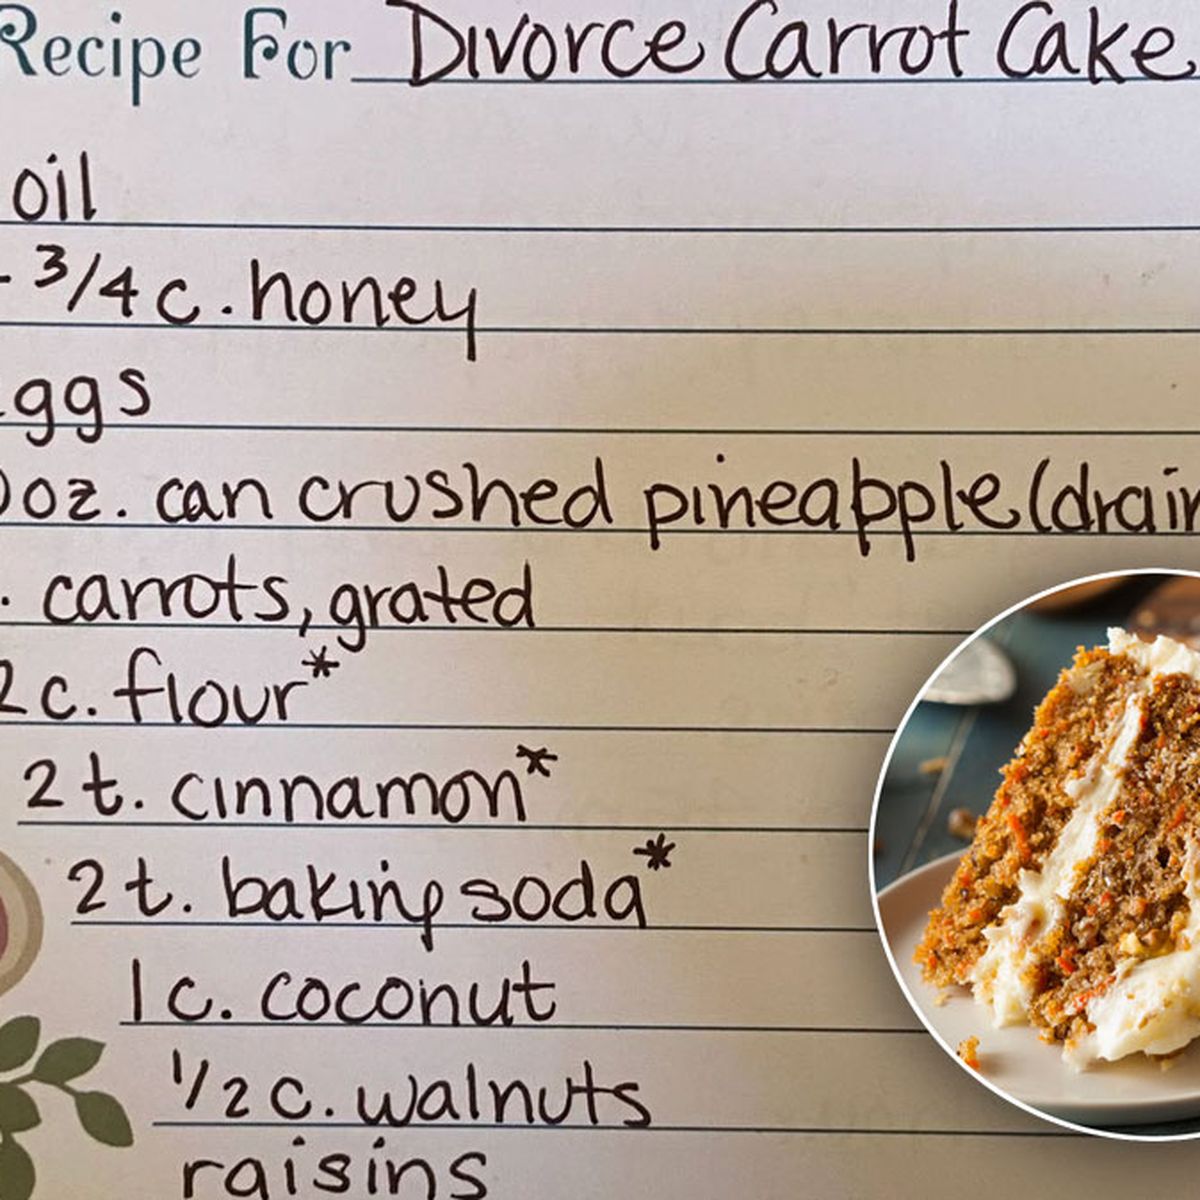 Recipe For Divorce Carrot Cake
oil
3/4 c. honey
ggs
0oz. can crushed pineapple (drain
. carrots, grated
2c. flour*
2 t. cinnamon*
2 t. baking soda*
1 c. coconut
1/2 c. walnuts
raisins